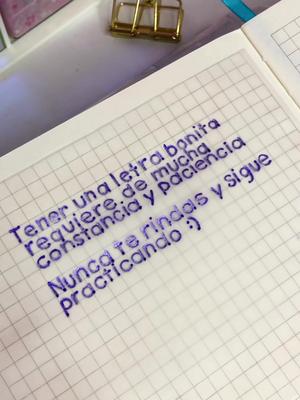 Tener una letra bonita
requiere de mucha
constancia y paciencia
Nunca te rindas y sigue
practicando :)